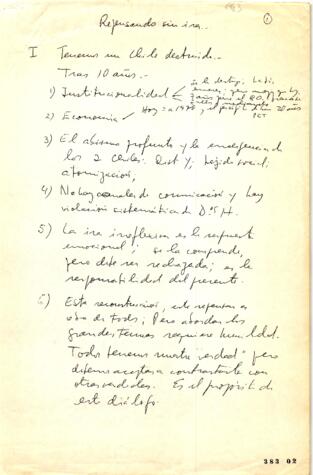 Repensando sin ira...
1
I Tenemos un Chile destruido.
Tras 10 años.-
1) Institucionalidad
2) Economía
Hoy = a 1970,
20 años
3) El abismo profundo y la emergencia de
los 2 Chiles.
atomización,
4) No hay canales de comunicación y hay
violación sistemática de D° H.
5) La ira irreflexiva es la respuesta
emocional; se la comprende,
pero debe ser rechazada; es la
responsabilidad del presente.
6) Esta reconstrucción, este repensar es
obra de todos; Pero abordar los
grandes temas requiere humildad.
Todos tenemos nuestra "verdad" pero
debemos aceptar contrastarla con
otras verdades. Es el propósito de
este diálogo.
383 02